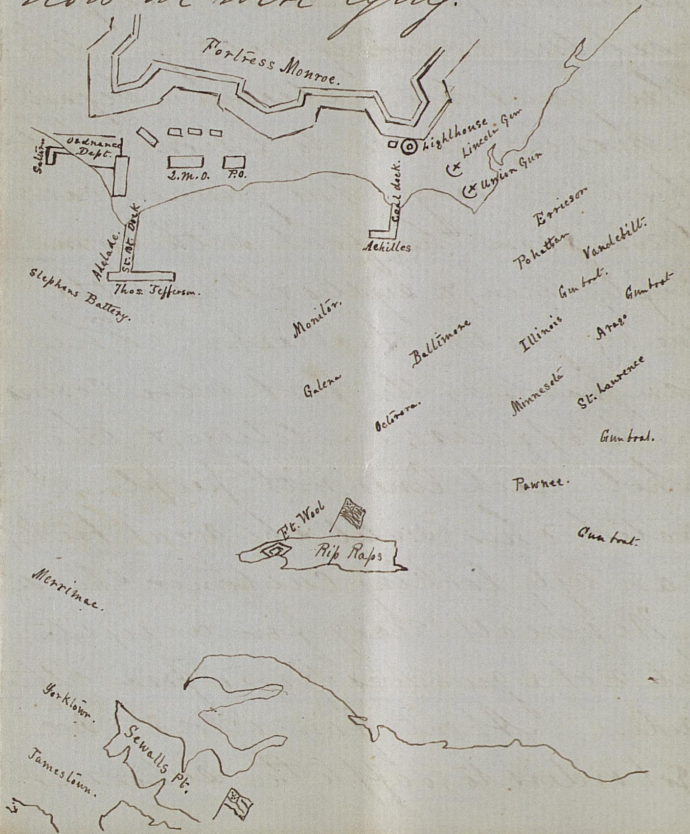 how we were lying.
Fortress Monroe.
Lighthouse
Lincoln Gun
Union Gun
Ordnance
Dept.
Q.M.O.
P.O.
Coal dock.
Achilles
Adelade.
St. Bt. Dock
Thos Jefferson.
Stephens Battery.
Ericcson
Pohattan
Vandebilt.
Gunboat.
Gunboat
Monitor.
Baltimore
Illinois
Arago
Galena
Octorora.
Minnesota
St. Laurence
Gunboat.
Pawnee.
Gunboat.
Ft. Wool
Rip Raps
Merrimac.
Yorktown
Sewalls Pt.
Jamestown.